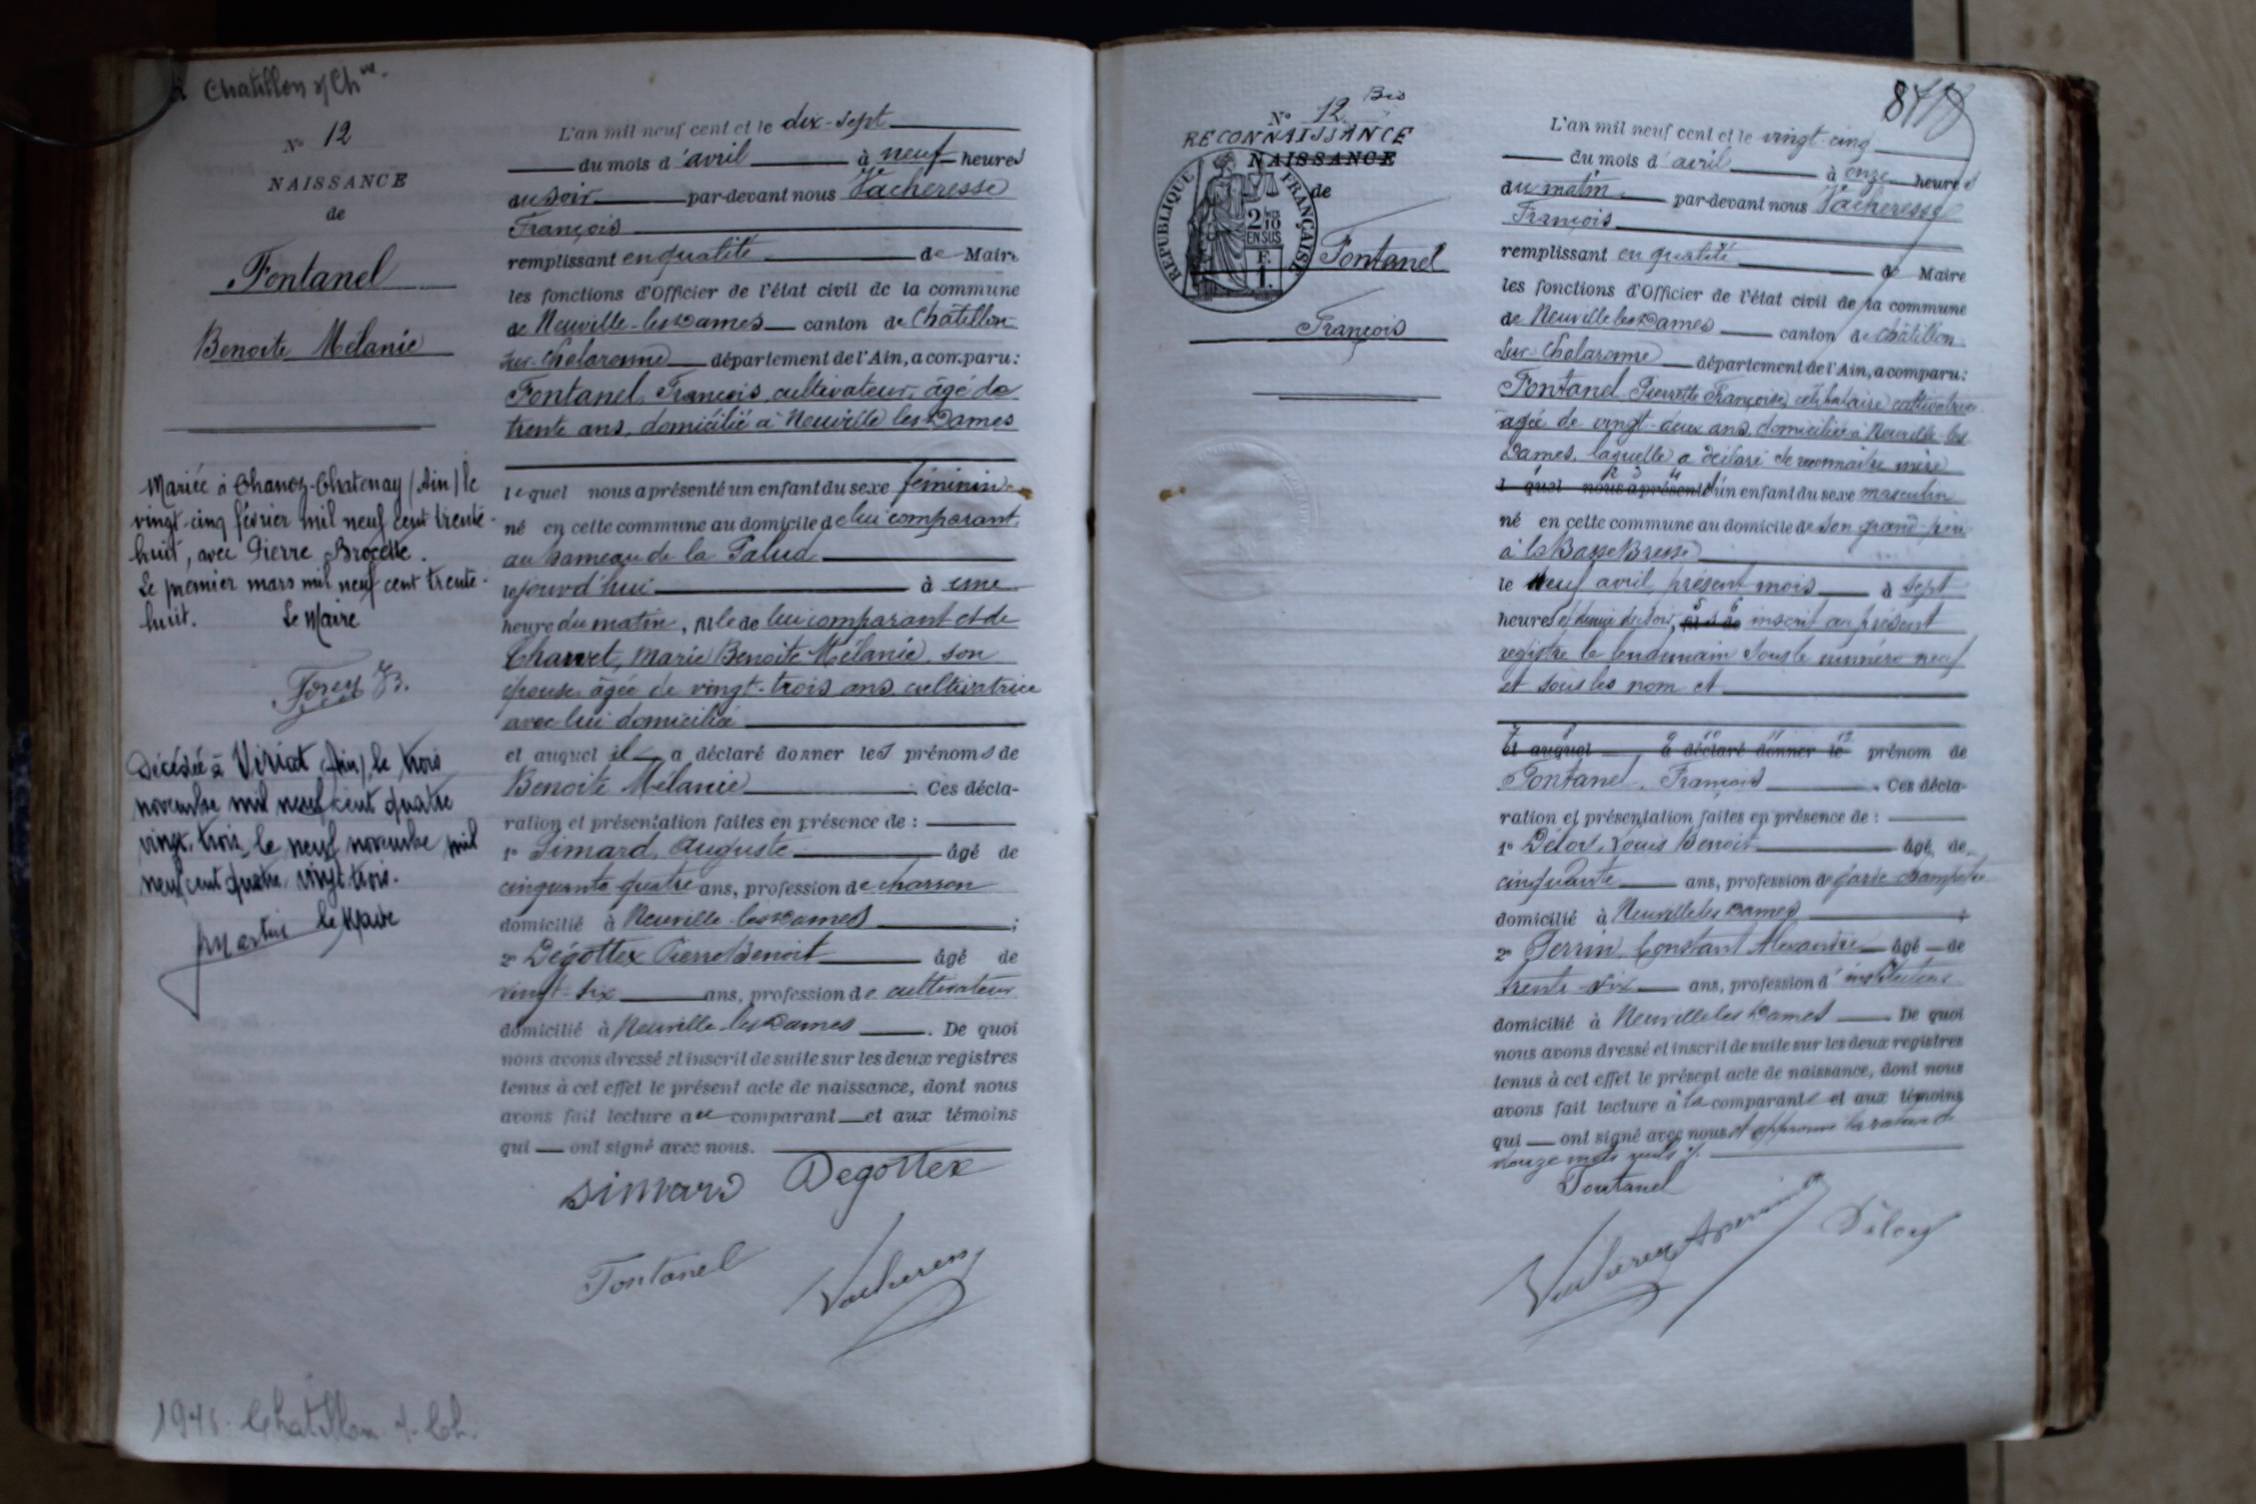 Chatillon s/ Ch^ne.
N° 12
NAISSANCE
de
Fontanel
Benoite Mélanie
Mariée à Chanoz-Chatenay (Ain) le
vingt-cinq février mil neuf cent trente-
huit, avec Pierre Brocette.
Le premier mars mil neuf cent trente-
huit. Le Maire
Décédée à Viriat (Ain) le trois
novembre mil neuf cent quatre
vingt. trois, le neuf novembre mil
neuf cent quatre. vingt trois.
le Maire
L'an mil neuf cent et le dix-sept
du mois d'avril à neuf heures
du soir par-devant nous Vacheresse
François
remplissant en qualité de Maire
les fonctions d'Officier de l'état civil de la commune
de Neuville-les-Dames canton de Châtillon-
sur-Chalaronne département de l'Ain, a comparu:
Fontanel, François, cultivateur, âgé de
trente ans, domicilié à Neuville les Dames
lequel nous a présenté un enfant du sexe féminin
né en cette commune au domicile de lui comparant,
au hameau de la Palud
cejourd'hui à une
heure du matin, fille de lui comparant et de
Charvet, Marie Benoite Mélanie, son
épouse âgée de vingt-trois ans, cultivatrice
avec lui domiciliée
et auquel il a déclaré donner les prénoms de
Benoite Mélanie. Ces décla-
ration et présentation faites en présence de :
1° Simard, Auguste âgé de
cinquante quatre ans, profession de charron
domicilié à Neuville-les-Dames ;
2° Dégottex Pierre Benoit âgé de
vingt-six ans, profession de cultivateur
domicilié à Neuville-les-Dames. De quoi
nous avons dressé et inscrit de suite sur les deux registres
tenus à cet effet le présent acte de naissance, dont nous
avons fait lecture au comparant et aux témoins
qui ont signé avec nous.
Simard Degottex
Fontanel Vacheresse
Chatillon s/ Ch.
N° 12 Bis
RECONNAISSANCE
NAISSANCE
de
REPUBLIQUE FRANÇAISE
2/10
EN SUS
F.
1.
Fontanel
François
L'an mil neuf cent et le vingt-cinq
du mois d'avril à onze heures
du matin par-devant nous Vacheresse
François
remplissant en qualité de Maire
les fonctions d'Officier de l'état civil de la commune
de Neuville les Dames canton de Châtillon
sur-Chalaronne département de l'Ain, a comparu:
Fontanel Pierrette Françoise, célibataire cultivatrice
âgée de vingt-deux ans, domiciliée à Neuville-les
Dames, laquelle a déclaré se reconnaître mère
l quel nous a présenté d'un enfant du sexe masculin
né en cette commune au domicile de son grand-père
à la Basse Bresse
le neuf avril, présent mois à sept
heures et demie du soir, fils de inscrit au présent
registre le lendemain sous le numéro neuf
et sous les nom et
et auquel a déclaré donner le prénom de
Fontanel, François. Ces décla-
ration et présentation faites en présence de :
1° Déloy, Louis Benoit âgé de
cinquante ans, profession de garde champêtre
domicilié à Neuville les Dames ;
2° Perrin, Constant Alexandre âgé de
trente-six ans, profession d'instituteur
domicilié à Neuville les Dames De quoi
nous avons dressé et inscrit de suite sur les deux registres
tenus à cet effet le présent acte de naissance, dont nous
avons fait lecture à la comparante et aux témoins
qui ont signé avec nous et approuvé la rature de
douze mots nuls
Fontanel
Vacheresse Perrin Déloy